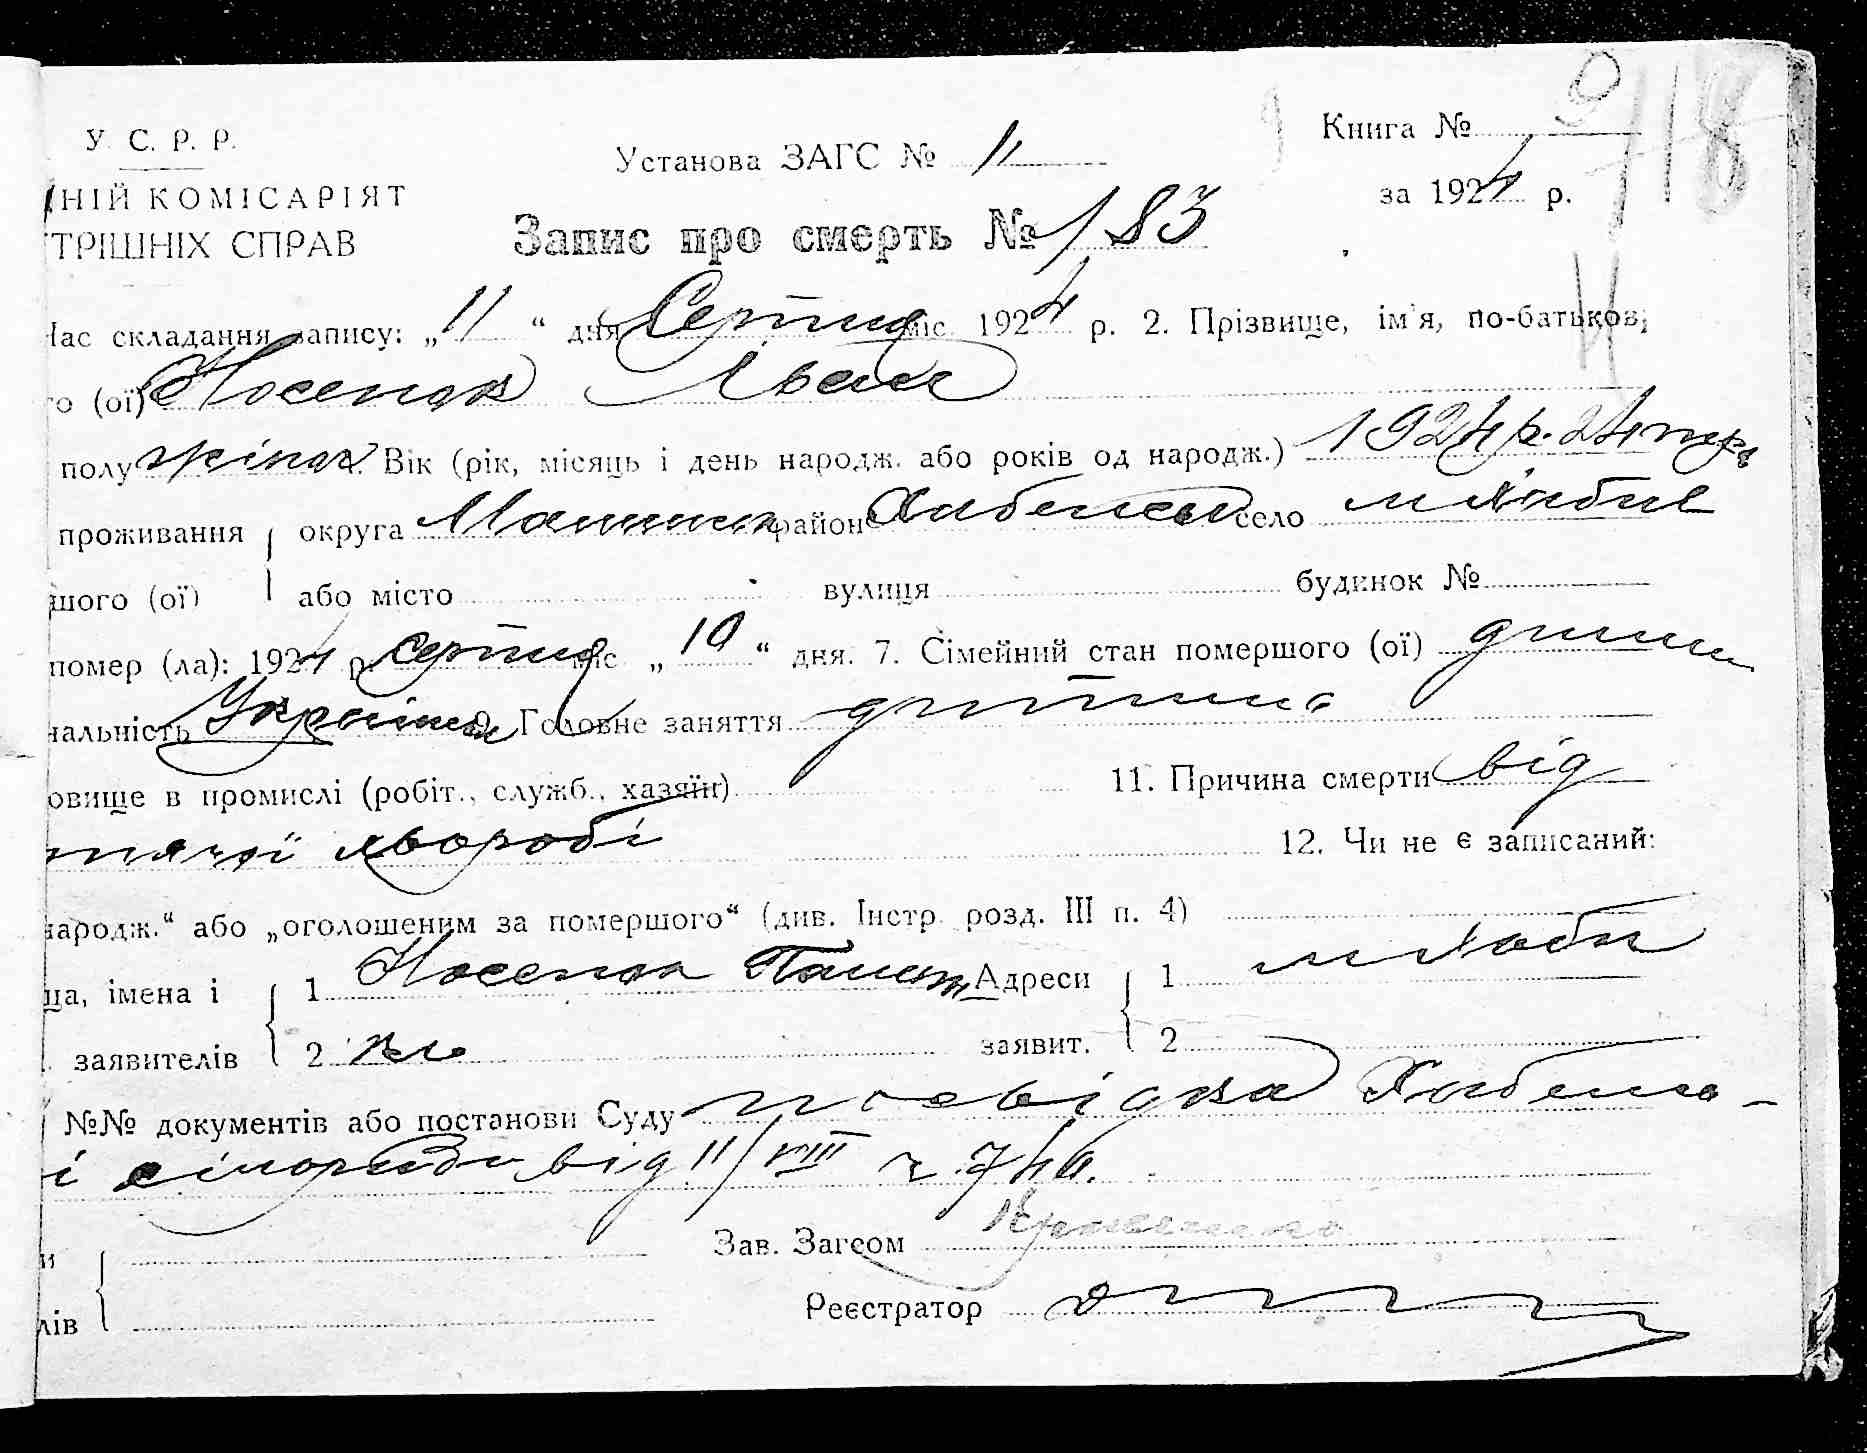 У. С. Р. Р.
НІЙ КОМІСАРІЯТ
ТРІШНІХ СПРАВ
Установа ЗАГС № 11
Книга №
за 1924 р.
Запис про смерть № 183
Час складання запису: „11“ дня Серпня міс. 1924 р. 2. Прізвище, ім'я, по-батькові
го (ої) Носенок Іван
полу жіноч. Вік (рік, місяць і день народж. або років од народж.) 1924 р. 24
проживання округа район Хабенськ село м Хабне
шого (ої) або місто вулиця будинок №
помер (ла): 1924 р. серпня міс „10“ дня. 7. Сімейний стан помершого (ої)
нальність Україн 9. Головне заняття дитина
овище в промислі (робіт., служб., хазяїн) 11. Причина смерти від
тячої хвороби 12. Чи не є записаний:
народж.“ або „оголошеним за помершого“ (див. Інстр. розд. III п. 4)
ца, імена і 1 Носенок Адреси 1 м Хабн
заявителів 2 заявит. 2
№№ документів або постанови Суду посвідка Хабенсь-
і сільради від 11/VIII
и Зав. Загсом
лів Реєстратор